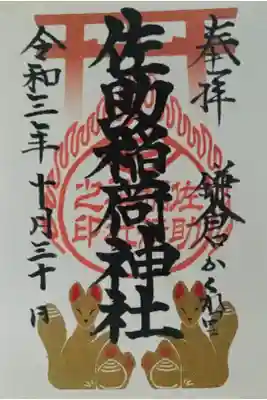 奉拝
鎌倉かくれ里
佐助稲荷神社
令和三年十月三十日
佐助稲荷神社之印